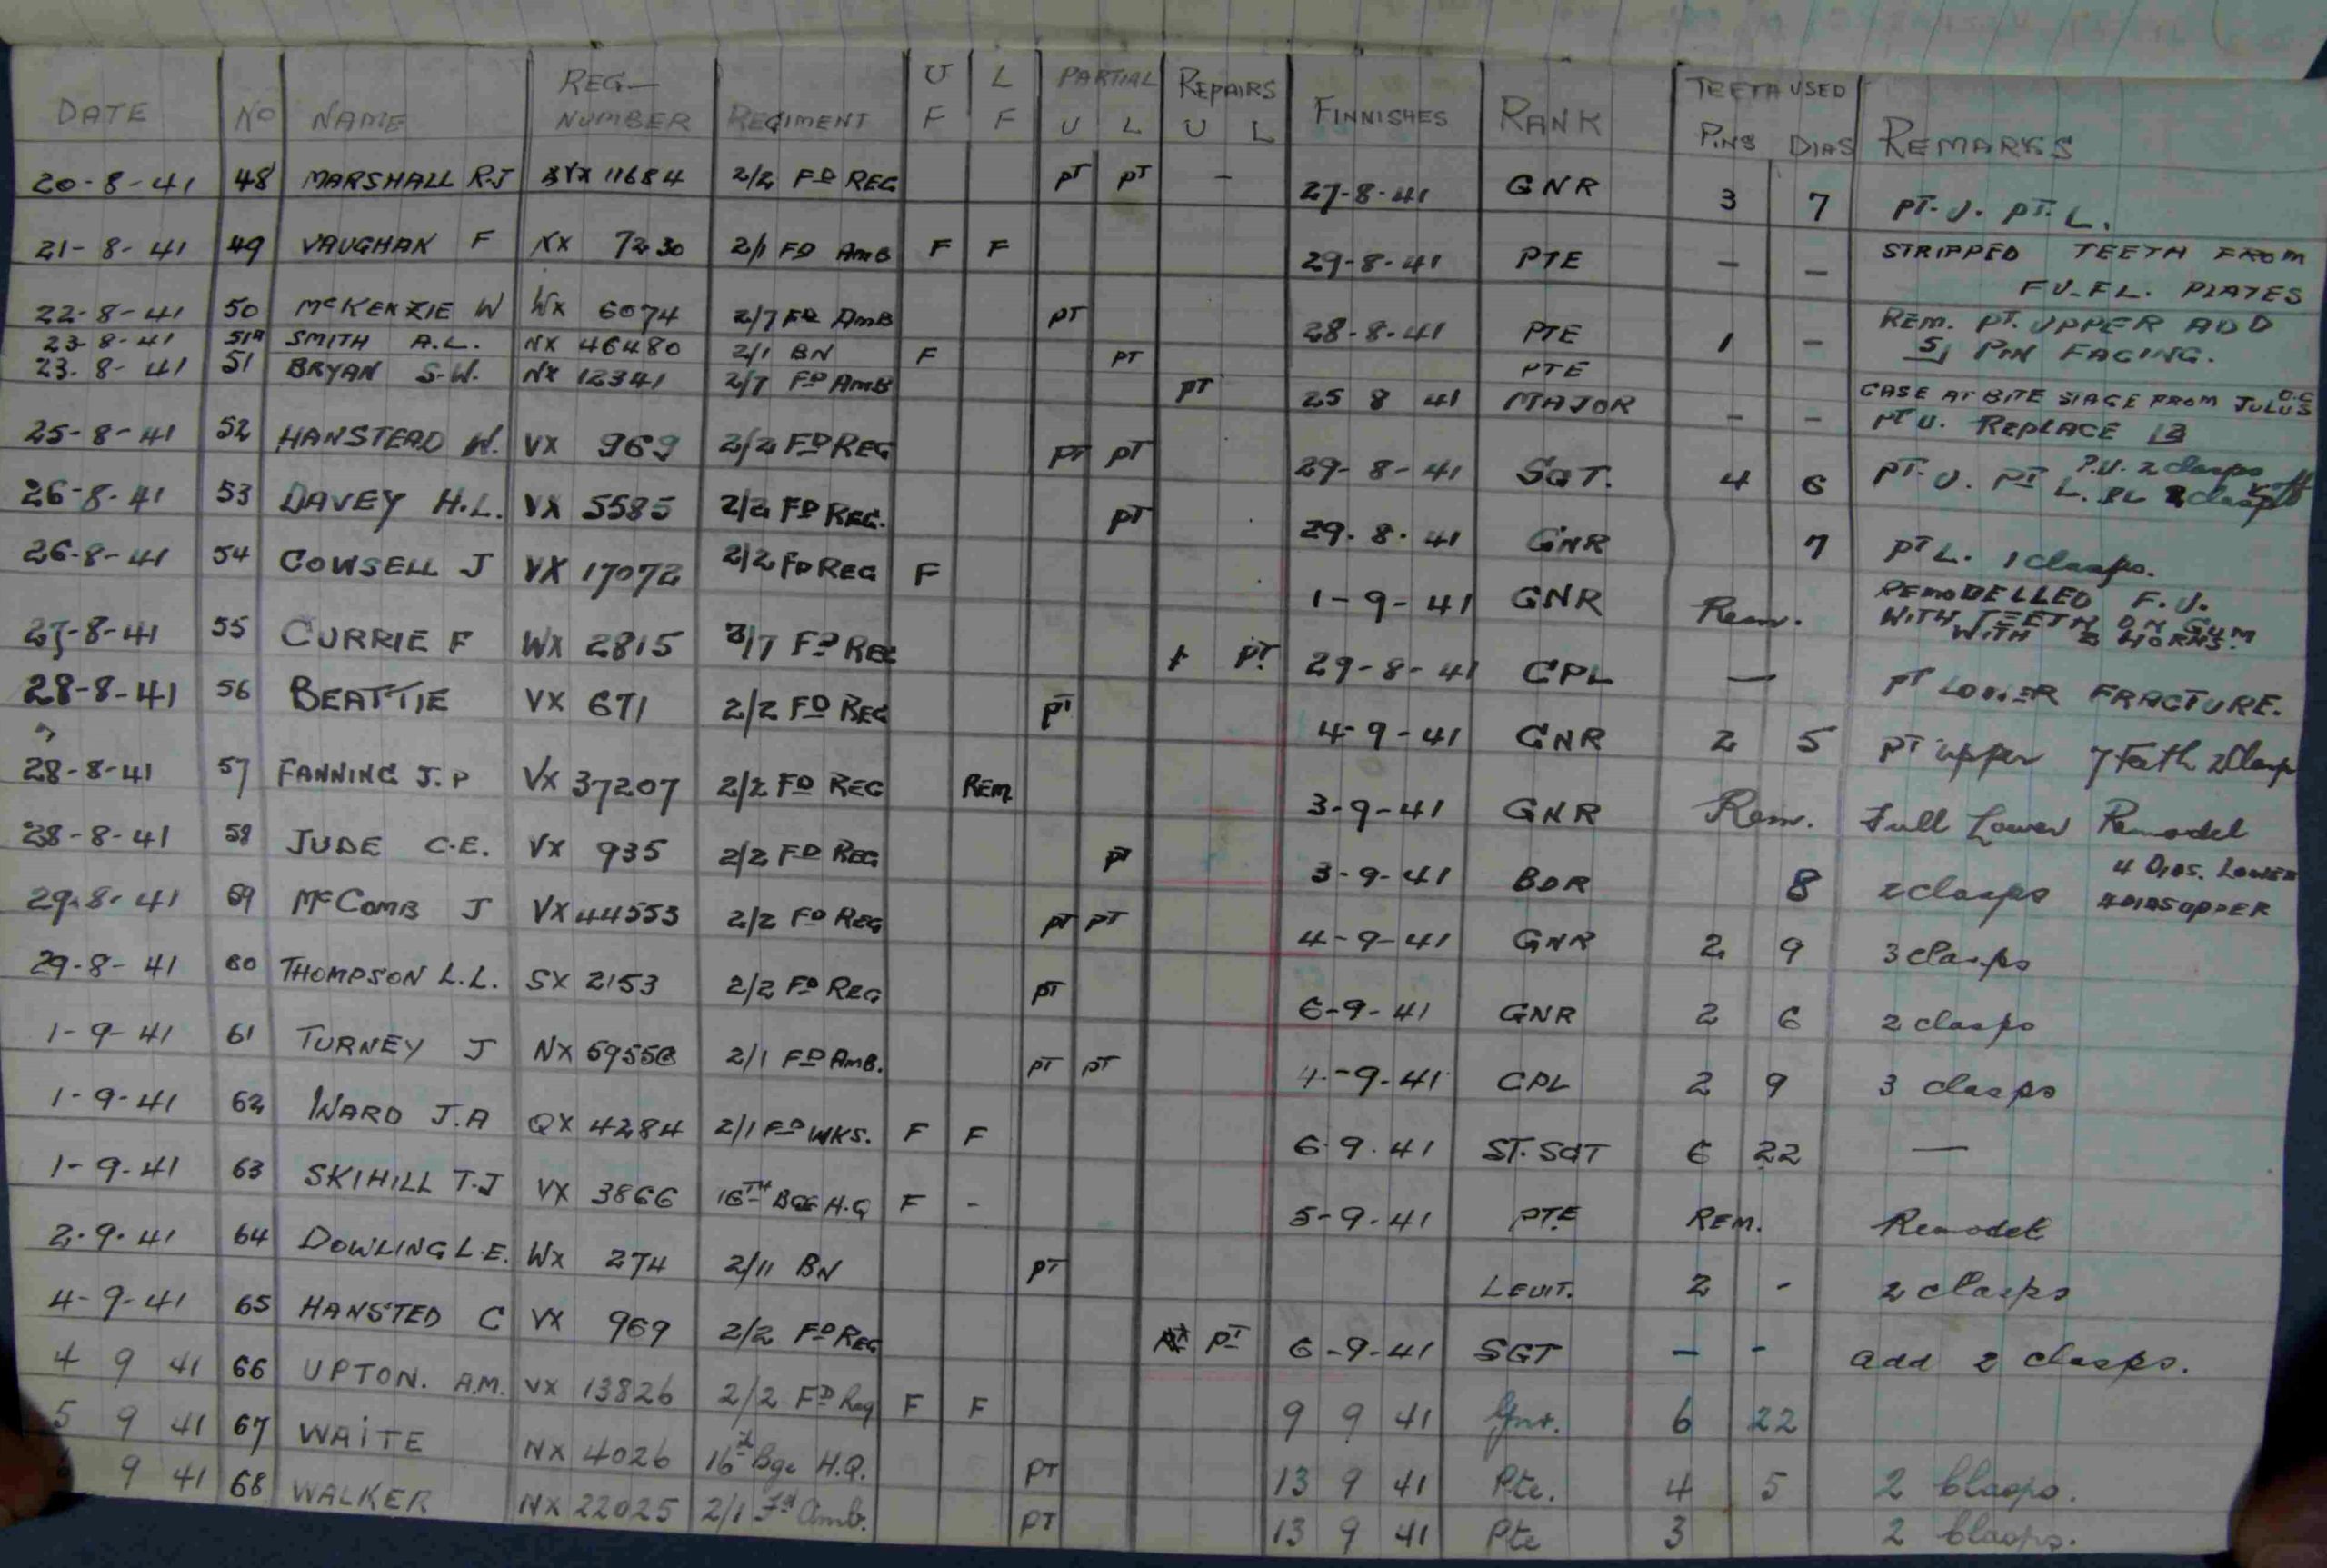 DATE NO NAME REG- NUMBER REGIMENT U F L F PARTIAL U L REPAIRS U L FINNISHES RANK TEETH USED PINS DIAS REMARKS
20-8-41 48 MARSHALL R.J 11684 2/2 FD REG PT PT - 27-8-41 GNR 3 7 PT. U. PT. L.
21-8-41 49 VAUGHAN F NX 7230 2/1 FD AMB F F 29-8-41 PTE - - STRIPPED TEETH FROM
FU-FL. PLATES
22-8-41 50 McKENZIE W WX 6074 2/7 FD AMB PT 28-8-41 PTE 1 - REM. PT. UPPER ADD
5| PIN FACING.
23-8-41 51A SMITH A.L. NX 46480 2/1 BN F PT PTE CASE AT BITE STAGE FROM JULUS
23.8-41 51 BRYAN S.W. NX 12341 2/7 FD AMB PT 25 8 41 MAJOR - - PT U. REPLACE |3
25-8-41 52 HANSTEAD W. VX 969 2/2 FD REG PT PT 29-8-41 SGT. 4 6 PT. U. PT L. P.U. 2 clasps
26-8-41 53 DAVEY H.L. VX 5585 2/2 FD REG. PT 29.8.41 GNR 7 PT L. 1 clasps.
26-8-41 54 COWSELL J VX 17072 2/2 FD REG F 1-9-41 GNR Rem. REMODELLED F.U.
WITH TEETH ON GUM
WITH 2 HORNS.
27-8-41 55 CURRIE F WX 2815 2/7 FD REG PT 29-8-41 CPL — PT LOWER FRACTURE.
28-8-41 56 BEATTIE VX 671 2/2 FD REG PT 4-9-41 GNR 2 5 PT upper 7 teeth 2 Clasp
28-8-41 57 FANNING J.P VX 37207 2/2 FD REG REM 3-9-41 GNR Rem. Full Lower Remodel
28-8-41 58 JUDE C.E. VX 935 2/2 FD REG PT 3-9-41 BDR 8 2 clasps 4 DIAS. LOWER
4 DIAS UPPER
29-8-41 59 McCOMB J VX 44553 2/2 FD REG PT PT 4-9-41 GNR 2 9 3 clasps
29-8-41 60 THOMPSON L.L. SX 2153 2/2 FD REG PT 6-9-41 GNR 2 6 2 clasps
1-9-41 61 TURNEY J NX 2/1 FD AMB. PT PT 4-9-41 CPL 2 9 3 clasps
1-9-41 62 WARD J.A QX 4284 2/1 FD WKS. F F 6.9.41 ST. SGT 6 22 —
1-9-41 63 SKIHILL T.J VX 3866 16TH BGE H.Q F - 5-9-41 PTE REM. Remodel
2.9.41 64 DOWLING L.E. WX 274 2/11 BN PT LEUIT. 2 - 2 clasps
4-9-41 65 HANSTED C VX 969 2/2 FD REG PT 6-9-41 SGT - - add 2 clasps.
4 9 41 66 UPTON. A.M. VX 13826 2/2 FD Reg F F 9 9 41 Gnr. 6 22
5 9 41 67 WAITE NX 4026 16th Bge H.Q. PT 13 9 41 Pte. 4 5 2 Clasps.
9 41 68 WALKER NX 22025 2/1 Fd Amb. PT 13 9 41 Pte 3 2 Clasps.